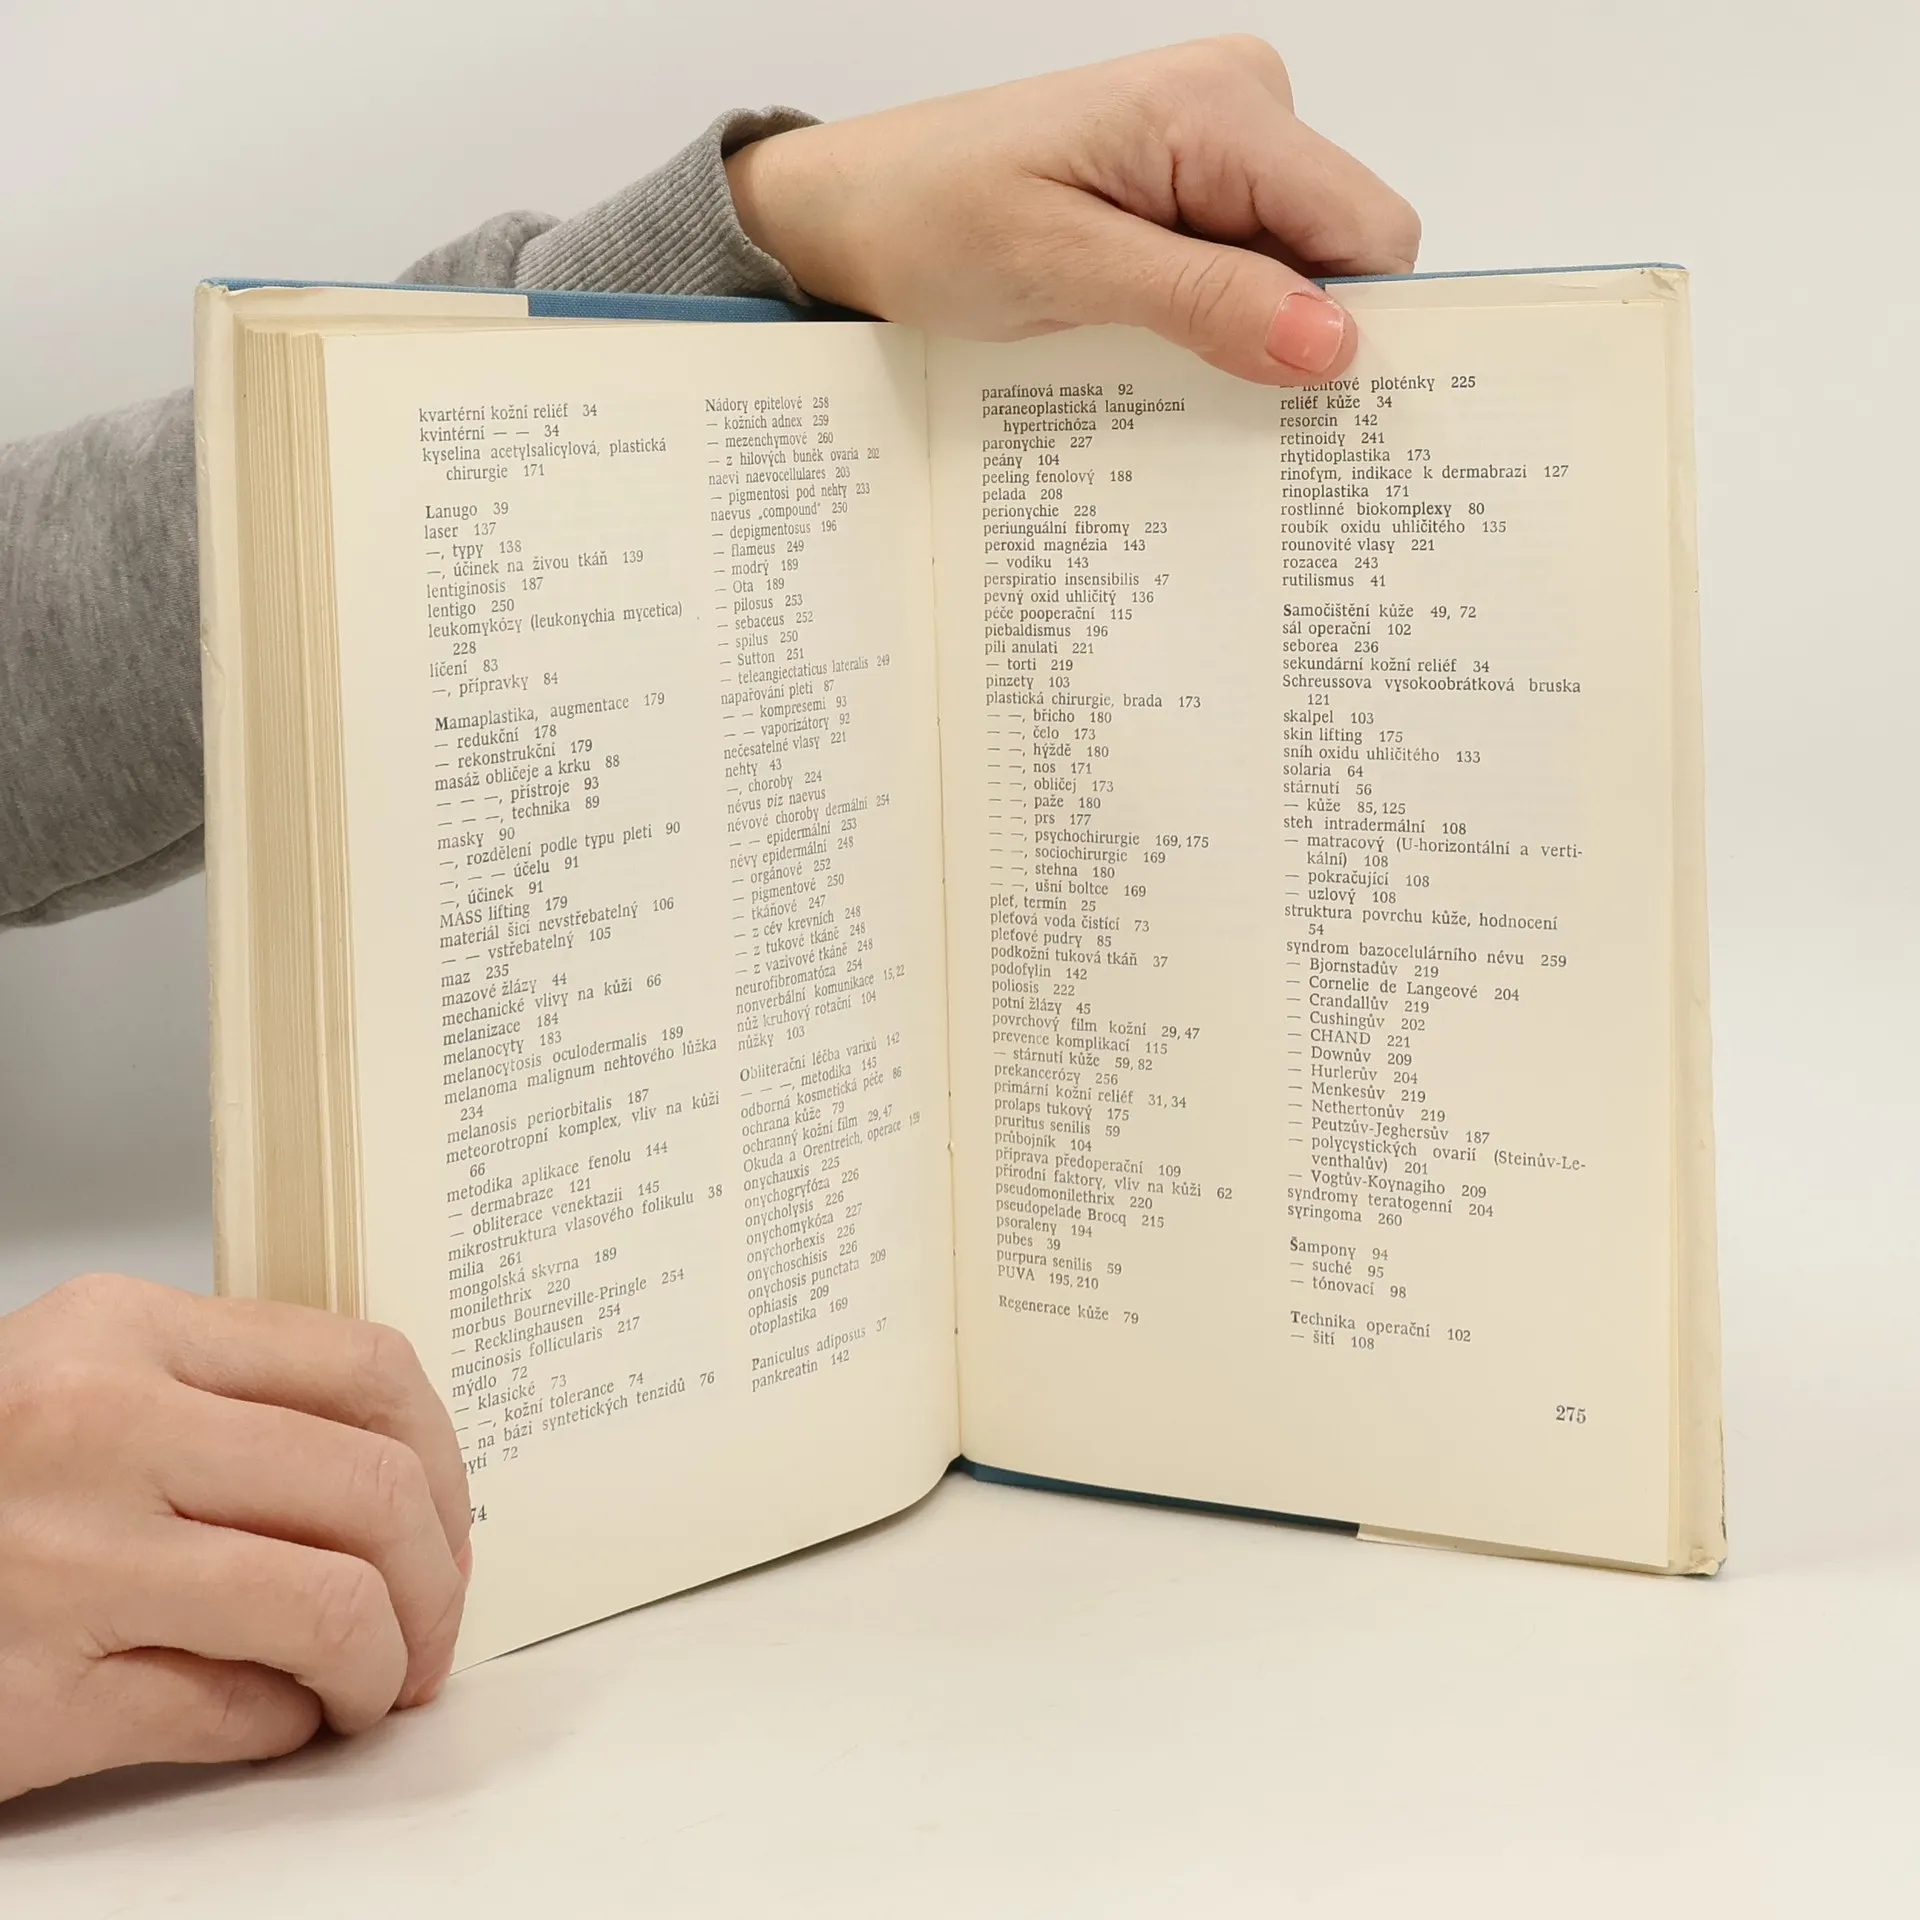 kvartérní kožní reliéf 34
kvintérní — — 34
kyselina acetylsalicylová, plastická
chirurgie 171
Lanugo 39
laser 137
—, typy 138
—, účinek na živou tkáň 139
lentiginosis 187
lentigo 250
leukomykózy (leukonychia mycetica)
228
líčení 83
—, přípravky 84
Mamaplastika, augmentace 179
— redukční 178
— rekonstrukční 179
masáž obličeje a krku 88
— — —, přístroje 93
— — —, technika 89
masky 90
—, rozdělení podle typu pleti 90
—, — — účelu 91
—, účinek 91
MASS lifting 179
materiál šicí nevstřebatelný 106
— — vstřebatelný 105
maz 235
mazové žlázy 44
mechanické vlivy na kůži 66
melanizace 184
melanocyty 183
melanocytosis oculodermalis 189
melanoma malignum nehtového lůžka
234
melanosis periorbitalis 187
meteorotropní komplex, vliv na kůži
66
metodika aplikace fenolu 144
— dermabraze 121
— obliterace venektazii 145
mikrostruktura vlasového folikulu 38
milia 261
mongolská skvrna 189
monilethrix 220
morbus Bourneville-Pringle 254
— Recklinghausen 254
mucinosis follicularis 217
mýdlo 72
— klasické 73
— —, kožní tolerance 74
— na bázi syntetických tenzidů 76
ytí 72
74
Nádory epitelové 258
— kožních adnex 259
— mezenchymové 260
— z hilových buněk ovaria 202
naevi naevocellulares 203
— pigmentosi pod nehty 233
naevus „compound" 250
— depigmentosus 196
— flameus 249
— modrý 189
— Ota 189
— pilosus 253
— sebaceus 252
— spilus 250
— Sutton 251
— teleangiectaticus lateralis 249
napařování pleti 87
— — kompresemi 93
— — vaporizátory 92
nečesatelné vlasy 221
nehty 43
—, choroby 224
névus viz naevus
névové choroby dermální 254
— — epidermální 253
névy epidermální 248
— orgánové 252
— pigmentové 250
— tkáňové 247
— z cév krevních 248
— z tukové tkáně 248
— z vazivové tkáně 248
neurofibromatóza 254
nonverbální komunikace 15, 22
nůž kruhový rotační 104
nůžky 103
Obliterační léčba varixů 142
— — —, metodika 145
odborná kosmetická péče 86
ochrana kůže 79
ochranný kožní film 29, 47
Okuda a Orentreich, operace 159
onychauxis 225
onychogryfóza 226
onycholysis 226
onychomykóza 227
onychorhexis 226
onychoschisis 226
onychosis punctata 209
ophiasis 209
otoplastika 169
Paniculus adiposus 37
pankreatin 142
parafínová maska 92
paraneoplastická lanuginózní
hypertrichóza 204
paronychie 227
peány 104
peeling fenolový 188
pelada 208
perionychie 228
periunguální fibromy 223
peroxid magnézia 143
— vodíku 143
perspiratio insensibilis 47
pevný oxid uhličitý 136
péče pooperační 115
piebaldismus 196
pili anulati 221
— torti 219
pinzety 103
plastická chirurgie, brada 173
— —, břicho 180
— —, čelo 173
— —, hýždě 180
— —, nos 171
— —, obličej 173
— —, paže 180
— —, prs 177
— —, psychochirurgie 169, 175
— —, sociochirurgie 169
— —, stehna 180
— —, ušní boltce 169
pleť, termín 25
pleťová voda čistící 73
pleťové pudry 85
podkožní tuková tkáň 37
podofylin 142
poliosis 222
potní žlázy 45
povrchový film kožní 29, 47
prevence komplikací 115
— stárnutí kůže 59, 82
prekancerózy 256
primární kožní reliéf 31, 34
prolaps tukový 175
pruritus senilis 59
průbojník 104
příprava předoperační 109
přírodní faktory, vliv na kůži 62
pseudomonilethrix 220
pseudopelade Brocq 215
psoraleny 194
pubes 39
purpura senilis 59
PUVA 195, 210
Regenerace kůže 79
— nehtové ploténky 225
reliéf kůže 34
resorcin 142
retinoidy 241
rhytidoplastika 173
rinofym, indikace k dermabrazi 127
rinoplastika 171
rostlinné biokomplexy 80
roubík oxidu uhličitého 135
rounovité vlasy 221
rozacea 243
rutilismus 41
Samočištění kůže 49, 72
sál operační 102
seborea 236
sekundární kožní reliéf 34
Schreussova vysokoobrátková bruska
121
skalpel 103
skin lifting 175
sníh oxidu uhličitého 133
solaria 64
stárnutí 56
— kůže 85, 125
steh intradermální 108
— matracový (U-horizontální a verti-
kální) 108
— pokračující 108
— uzlový 108
struktura povrchu kůže, hodnocení
54
syndrom bazocelulárního névu 259
— Bjornstadův 219
— Cornelie de Langeové 204
— Crandallův 219
— Cushingův 202
— CHAND 221
— Downův 209
— Hurlerův 204
— Menkesův 219
— Nethertonův 219
— Peutzův-Jeghersův 187
— polycystických ovarií (Steinův-Le-
venthalův) 201
— Vogtův-Koynagiho 209
syndromy teratogenní 204
syringoma 260
Šampony 94
— suché 95
— tónovací 98
Technika operační 102
— šití 108
275